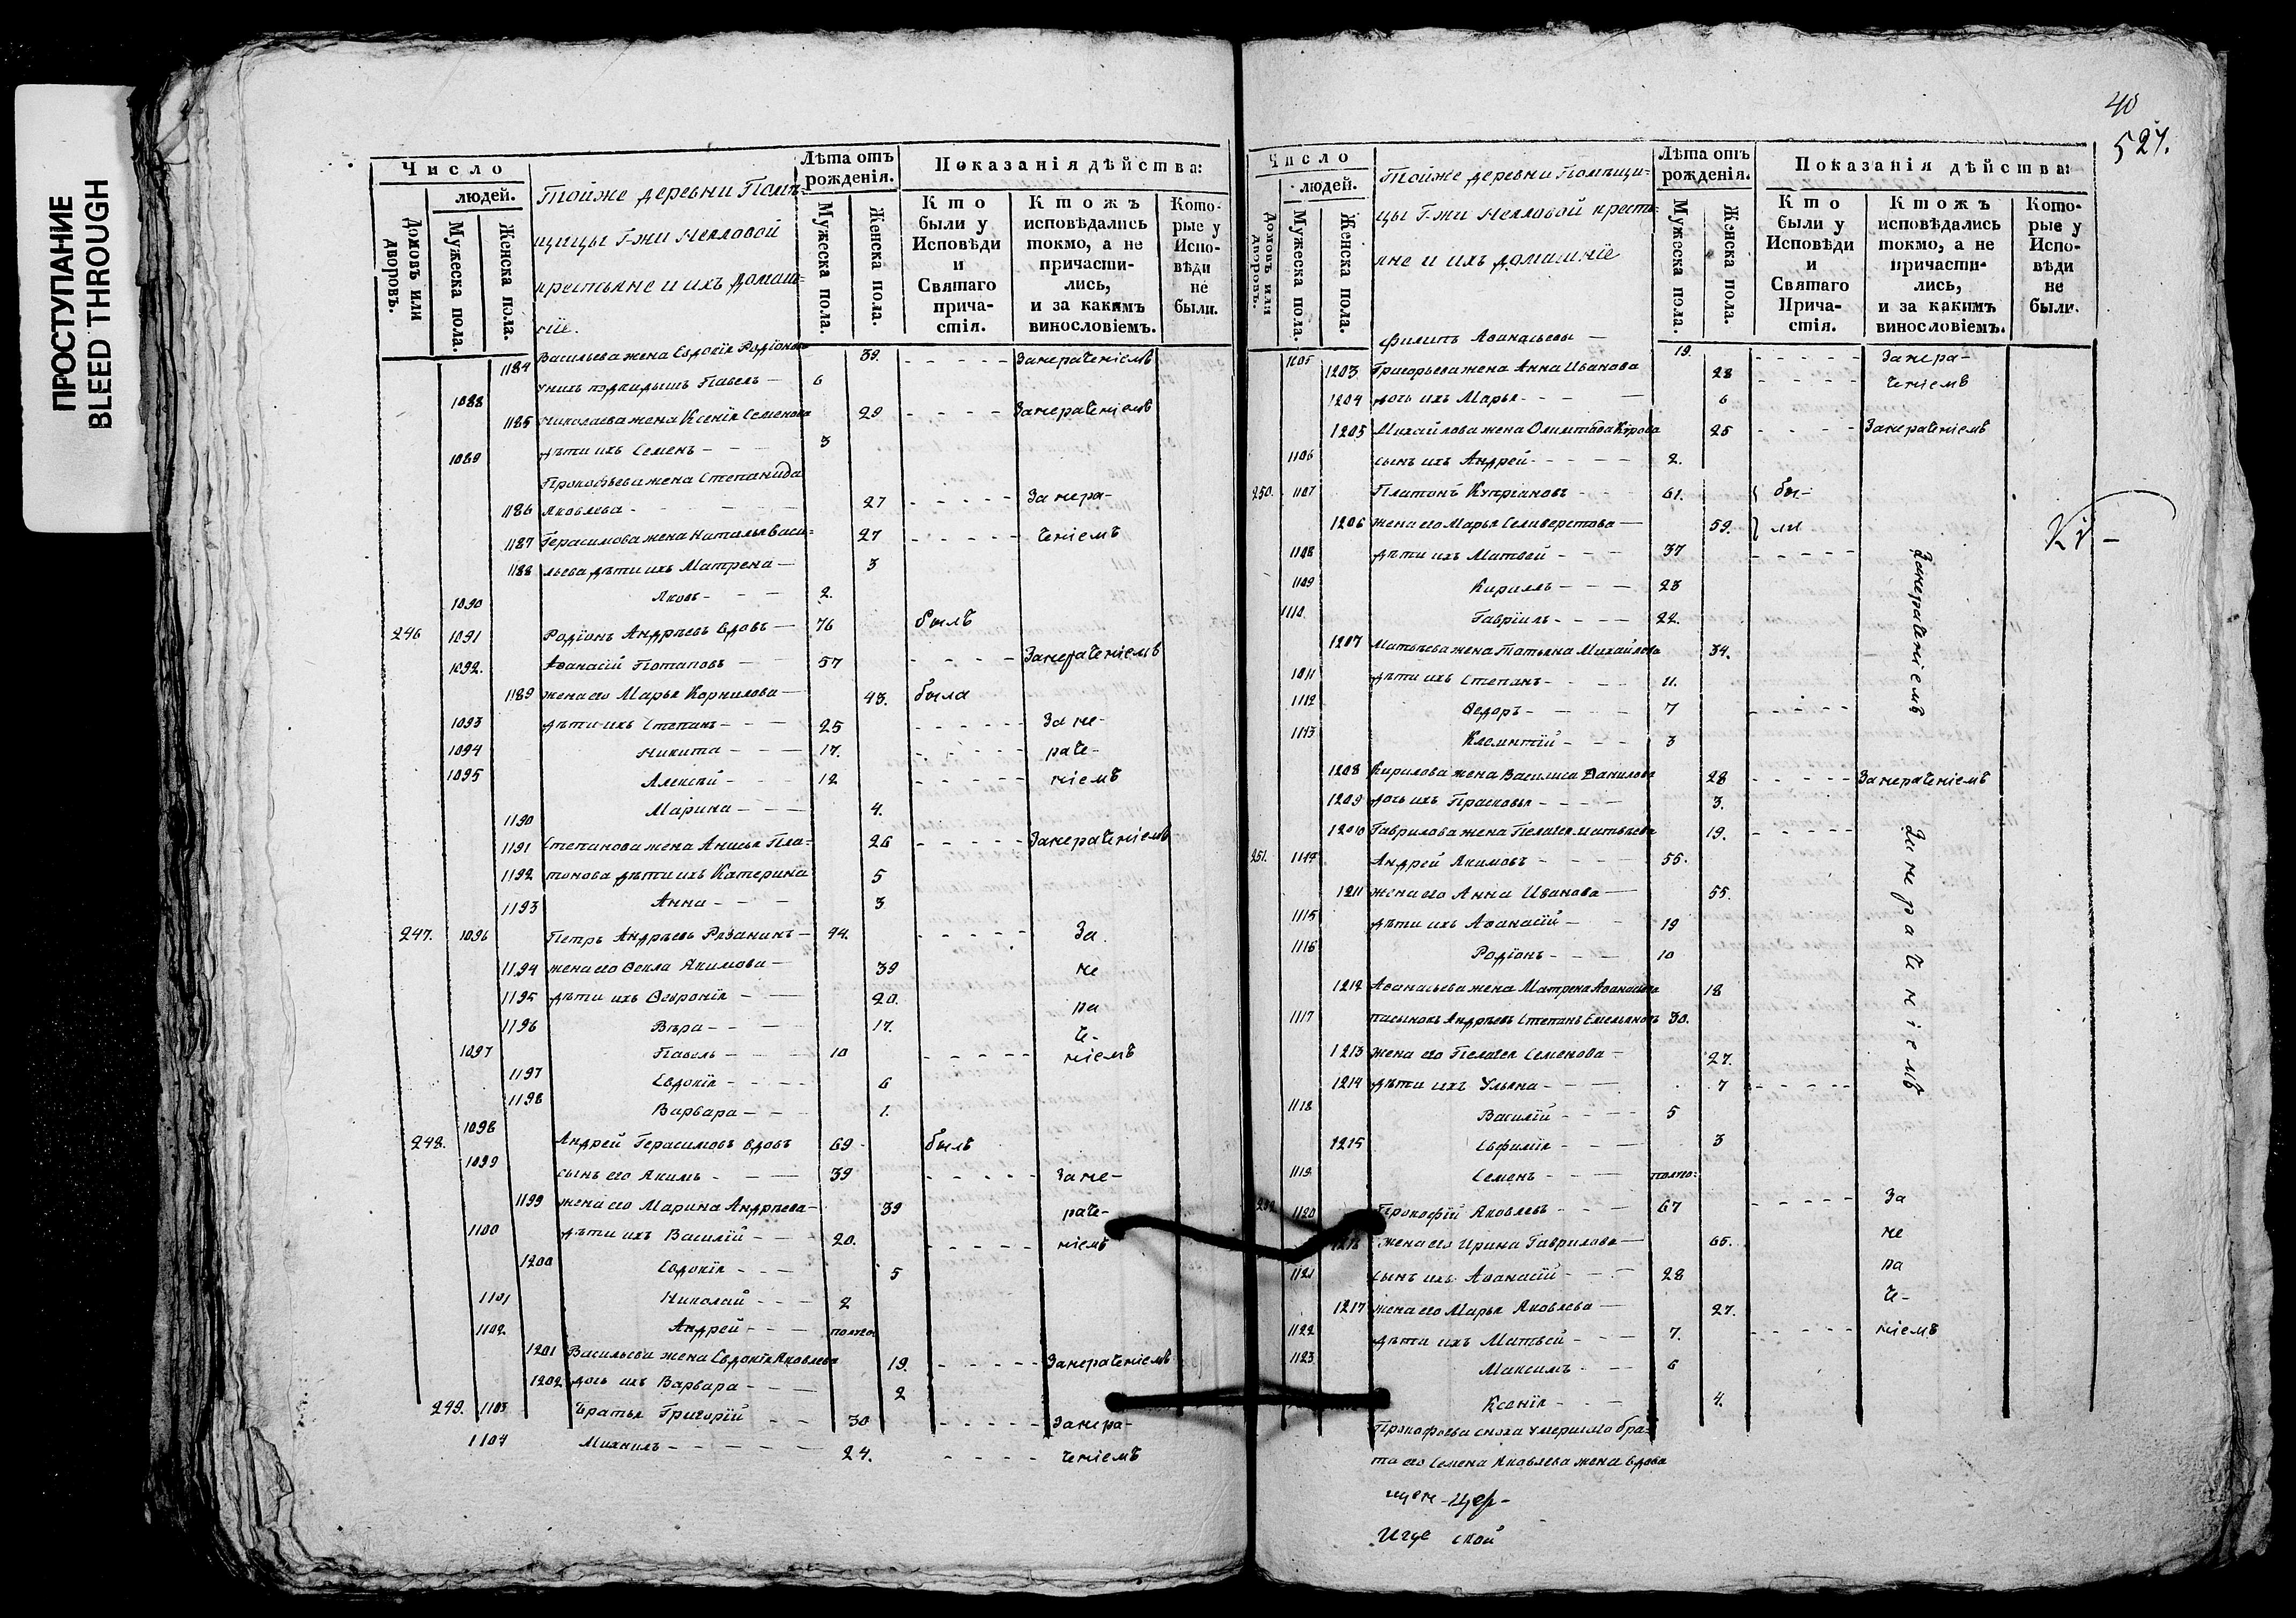 ПРОСТУПАНИЕ
BLEED THROUGH
Число
людей.
Домовъ или дворовъ.
Мужеска пола.
Женска пола.
Тойже деревни Помѣ-
щицы Г-жи
крестьяне и ихъ домаш-
нїе.
Лѣта отъ рожденія.
Мужеска пола.
Женска пола.
Показанія дѣйства:
Кто были у Исповѣди и Святаго причастія.
Ктожъ исповѣдались токмо, а не причастились, и за какимъ винословіемъ.
Которые у Исповѣди не были.
1184 Васильева жена Евдокїя Родїонова 39. Занераченіемъ
1088 у нихъ подкидышъ Павелъ 6
1185 Николаева жена Ксенїя Семенова 29 Занераченіемъ
1089 дѣти ихъ Семенъ 3
Прокофьева жена Степанида
1186 Яковлева 27 Занера-
1187 Герасимова жена Наталья Васи- 27 ченіемъ
1188 льева дѣти ихъ Матрена 3
1090 Яковъ 2.
246 1091 Родїонъ Андрѣевъ вдовъ 76 былъ
1092. Аѳанасїй Потаповъ 57 Занераченіемъ
1189 жена его Марья Корнилова 43. была
1093 дѣти ихъ Степанъ 25 Зане-
1094 Никита 17. раче-
1095 Алексѣй 12 ніемъ
1190 Марина 4.
1191 Степанова жена Анисья Пла- 26 Занераченіемъ
1192 тонова дѣти ихъ Катерина 5
1193 Анна 3
247. 1096 Петръ Андрѣевъ Рязанинъ 44. За
1194 жена его Ѳекла Якимова 39 не
1195 дѣти ихъ Ѳевронїя 20. ра
1196 Вѣра 17. че-
1097 Павелъ 10 ніемъ
1197 Евдокїя 6
1198 Варвара 1.
248. 1098 Андрей Герасимовъ вдовъ 69 былъ
1099 сынъ его Якимъ 39 Зане-
1199 жена его Марина Андрѣева 39 раче-
1100 дѣти ихъ Василїй 20. ніемъ
1200 Евдокїя 5
1101 Николай 2
1102. Андрей полго:
1201 Васильева жена Евдокїя Яковлева 19. Занераченіемъ
1202 дочь ихъ Варвара 2
249. 1103 Братья Григорїй 30 Занера-
1104 Михаилъ 24. ченіемъ
40
527.
Число
людей.
Домовъ или дворовъ.
Мужеска пола.
Женска пола.
Тойже деревни Помѣщи-
цы Г-жи крестья-
яне и ихъ домашнїе
Лѣта отъ рожденія.
Мужеска пола.
Женска пола.
Показанія дѣйства:
Кто были у Исповѣди и Святаго Причастія.
Ктожъ исповѣдались токмо, а не причастились, и за какимъ винословіемъ.
Которые у Исповѣди не были.
1105 Филипъ Аѳанасьевы 19. Занера-
1203 Григорьева жена Анна Иванова 28 ченіемъ
1204 дочь ихъ Марья 6
1205 Михайлова жена 25 Занераченіемъ
1106 сынъ ихъ Андрей 2.
250. 1107 Платонъ Купрїановъ 61. бы-
1206 жена его Марья Селиверстова 59. ли
1108 дѣти ихъ Матвей 37
1109 Кирилъ 23
1110. Гаврїилъ 22. Занераченіемъ
1207 Матвѣева жена Татьяна Михайлова 34.
1011 дѣти ихъ Степанъ 11.
1112 Ѳедоръ 7
1113 Клемнтїй 3
1208 Кирилова жена Василиса Данилова 28 Занераченіемъ
1209 дочь ихъ Прасковья 3.
12010 Гаврилова жена Пелагея Матвѣева 19.
251. 1114 Андрей Якимовъ 55.
1211 жена его Анна Иванова 55.
1115 дѣти ихъ Аѳанасїй 19
1116 Родїонъ 10 Занераченіемъ
1212 Аѳанасьева жена Матрена Аѳанасьева 18
1117 пасынокъ Андрѣевъ Степанъ Емельяновъ 30.
1213 жена его Пелагея Семенова 27.
1214 дѣти ихъ Ульяна 7
1118 Василїй 5
1215 Евфимїя 3
1119. Семенъ полго:
252 1120 Прокофїй Яковлевъ 67 За
1216 жена его Ирина Гаврилова 65. не
1121 сынъ ихъ Аѳанасїй 28 ра
1217 жена его Марья Яковлева 27. че-
1122 дѣти ихъ Матвей 7. ніемъ
1123 Максимъ 6
Ксенїя 4.
Прокофьева сноха умершаго бра-
та его Семена Яковлева жена вдова